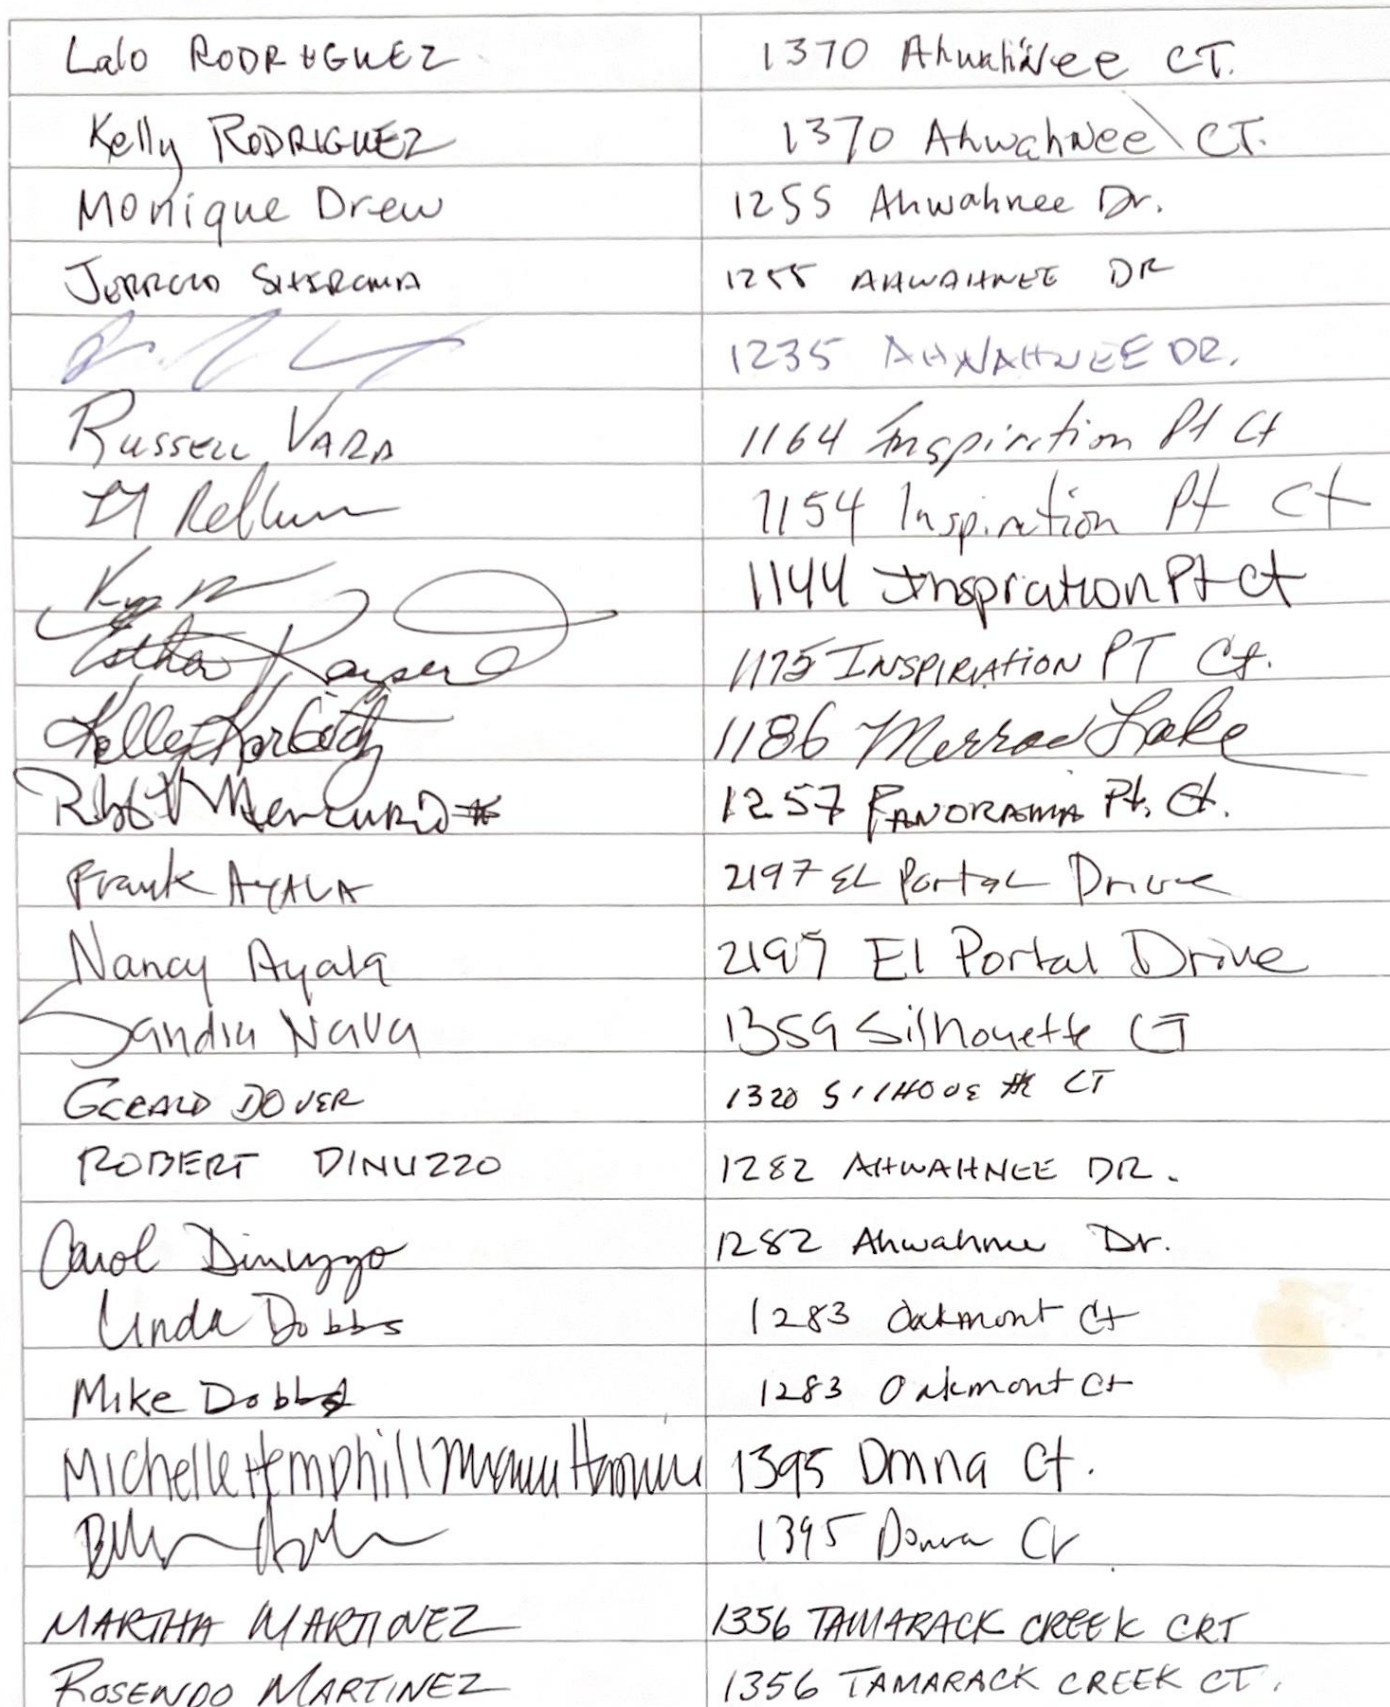 Lalo RODRIGUEZ 1370 Ahwahnee CT.
Kelly RODRIGUEZ 1370 AhwahNee CT.
Monique Drew 1255 Ahwahnee Dr.
1255 AHWAHNEE DR
1235 AHWAHNEE DR.
RUSSELL VARA 1164 Inspiration Pt Ct
1154 Inspiration Pt Ct
1144 Inspration Pt Ct
Esther 1175 INSPIRATION PT Ct.
Kelley 1186 Merced Lake
Mercurio 1257 PANORAMA Pt. Ct.
Frank AYALA 2197 EL Portal Drive
Nancy Ayala 2197 El Portal Drive
Sandra Nava 1359 Silhouette CT
GERALD DOVER 1320 CT
ROBERT DINUZZO 1282 AHWAHNEE DR.
Carol Dinuzzo 1282 Ahwahnee Dr.
Linda Dobbs 1283 Oakmont Ct
Mike Dobbs 1283 Oakmont Ct
Michelle Hemphill 1395 Donna Ct.
1395 Donna Ct
MARTHA MARTINEZ 1356 TAMARACK CREEK CRT
ROSENDO MARTINEZ 1356 TAMARACK CREEK CT.